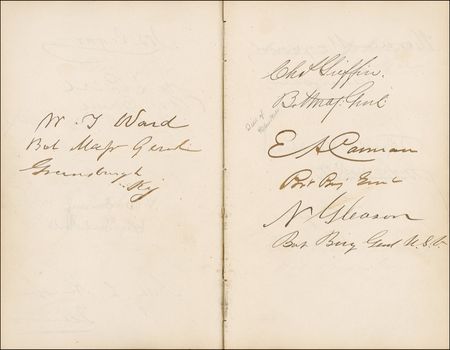 W. T. Ward
Bvt Majr Genl
Greensburgh
Ky
Chas Griffin.
Bvt Maj. Genl
E A Carman
Bvt Brig Genl
N Gleason
Bvt Brig Genl U.S.V.